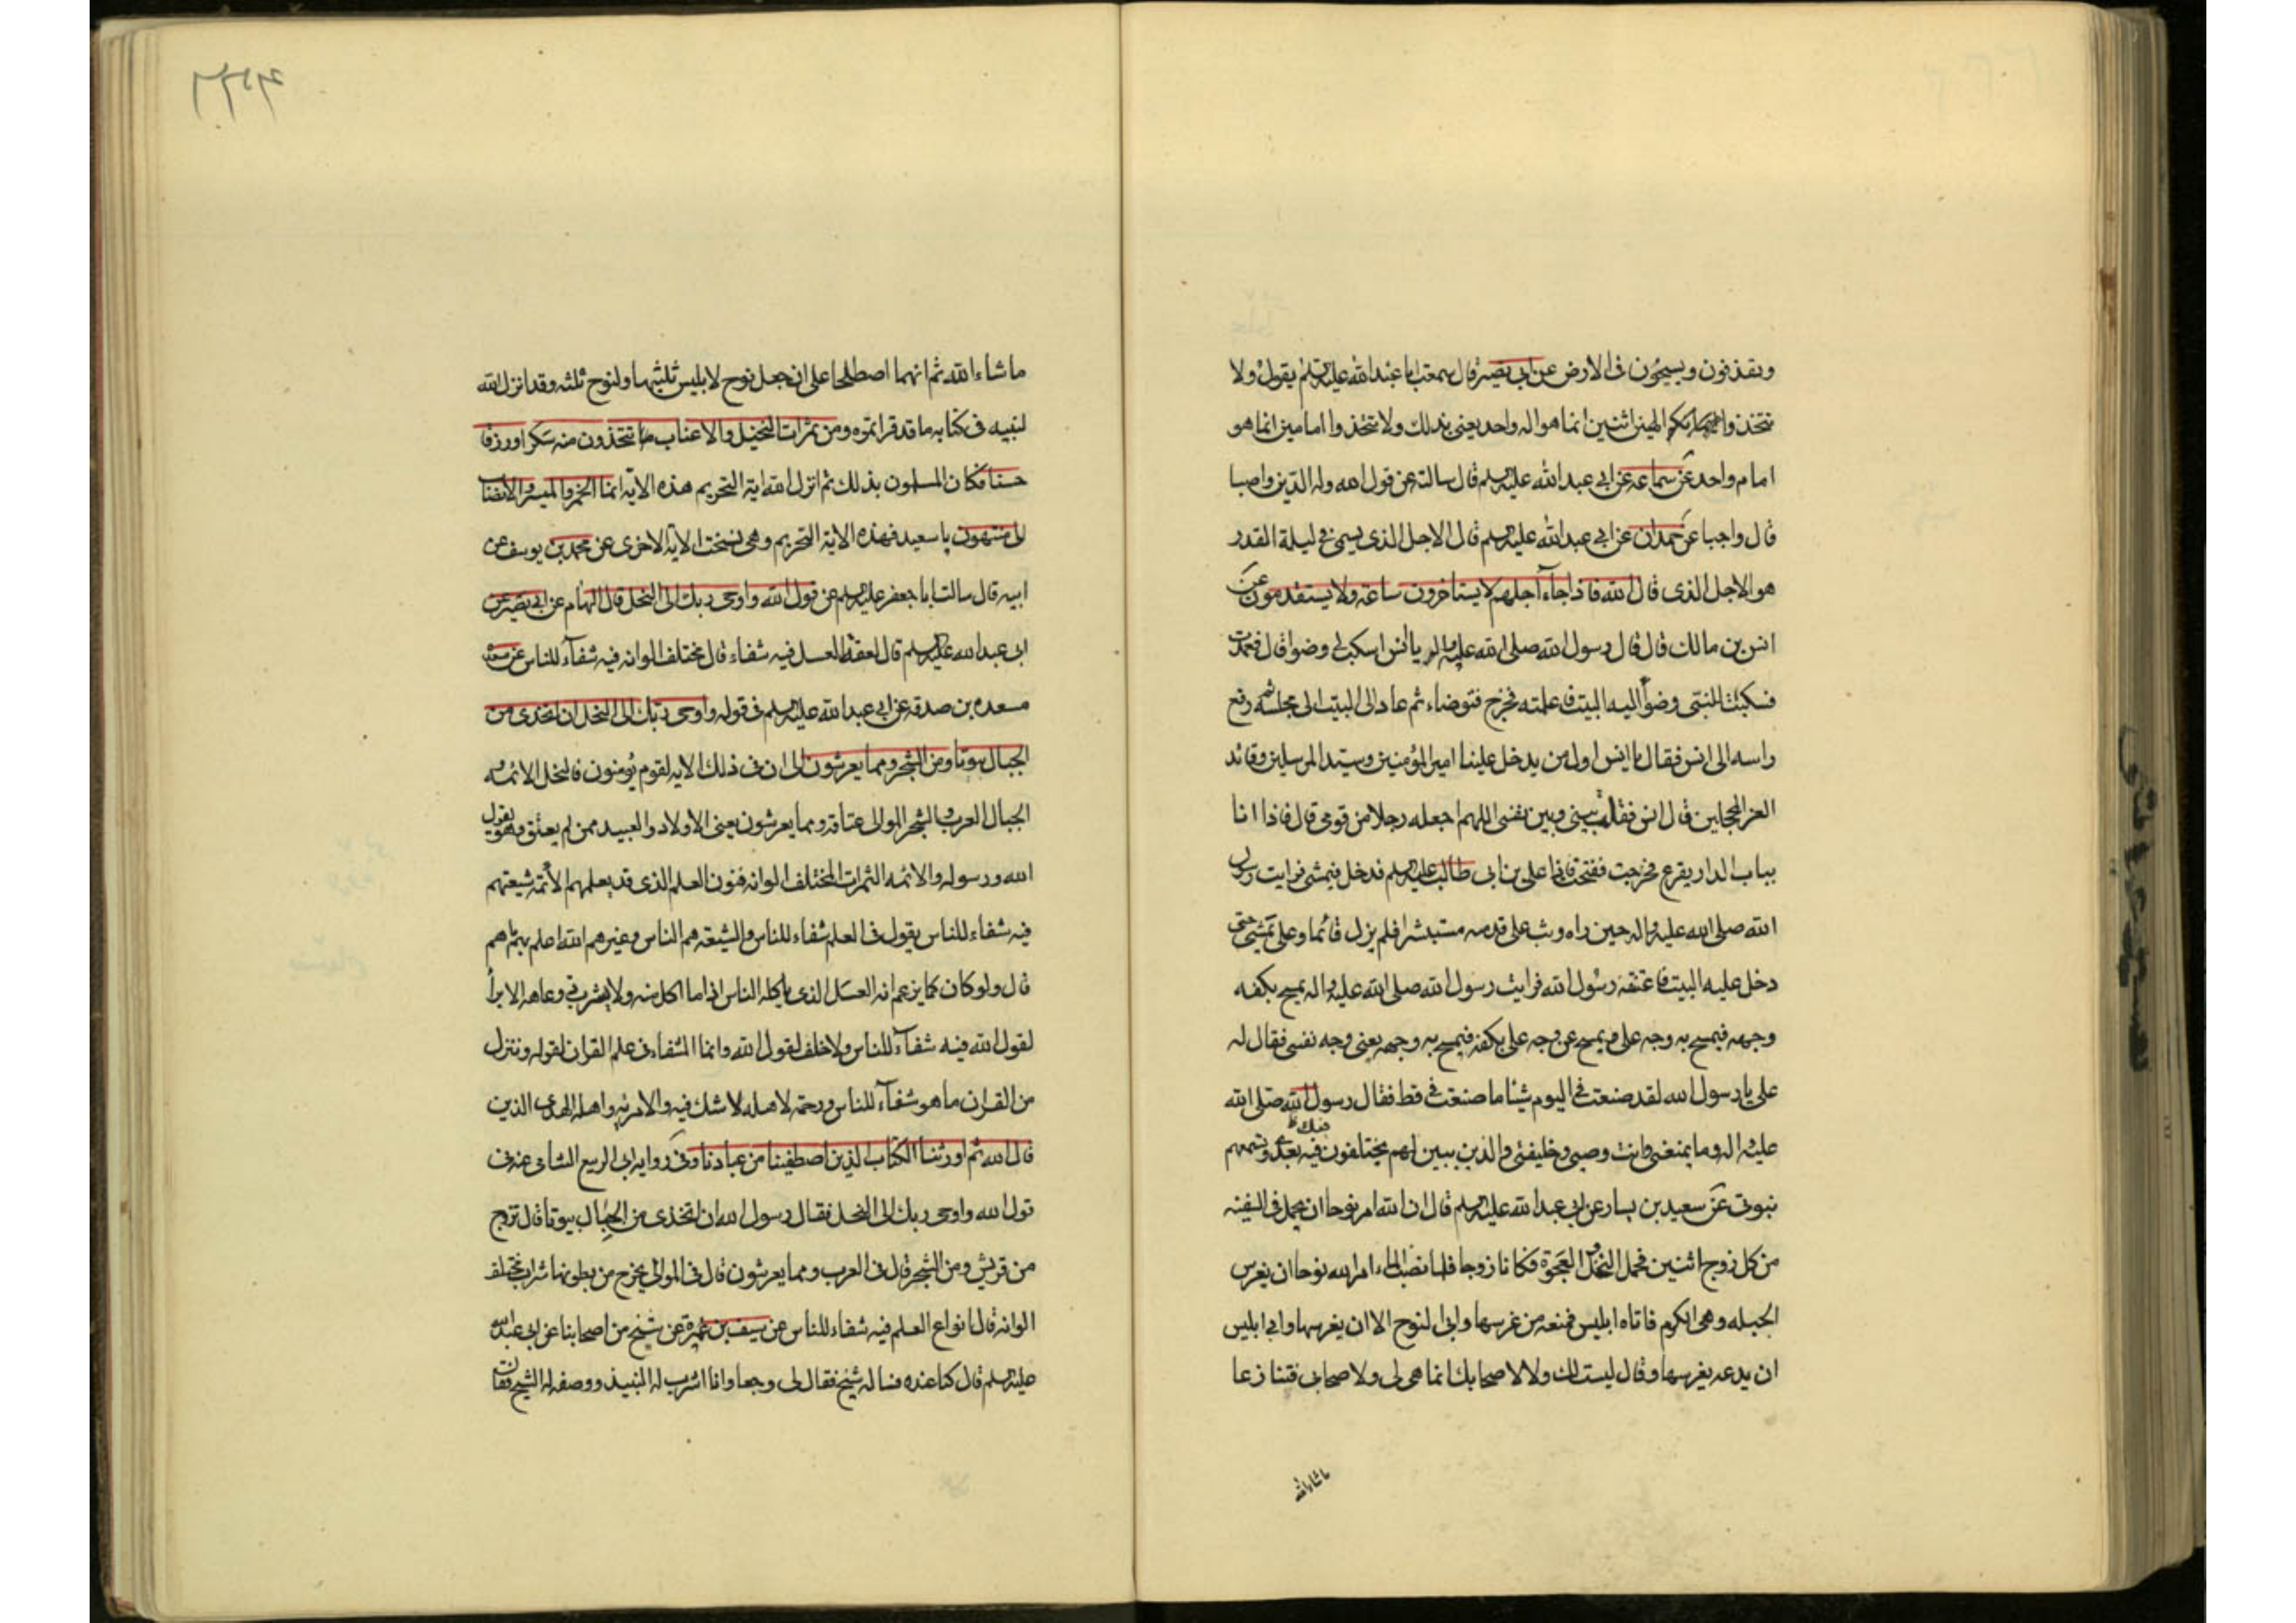 ويقذفون ويسيحون فى الارض عن ابى بصير قال سمعت ابا عبد الله عليه السلم يقول ولا
تتخذوا الهين اثنين انما هو اله واحد يعنى بذلك ولا تتخذوا امامين انما هو
امام واحد عن سماعه عن ابى عبد الله عليه السلم قال سالته عن قول الله وله الدين واصبا
قال واجبا عن حمدان عن ابى عبد الله عليه السلم قال الاجل الذى يسمى فى ليلة القدر
هو الاجل الذى قال الله فاذا جاء اجلهم لا يستاخرون ساعة ولا يستقدمون عن
انس بن مالك قال قال رسول الله صلى الله عليه واله يا انس اسكب لى وضوا قال فعمدت
فسكبت للنبى وضوأ اليه البيت فاعلمته فخرج فتوضاء ثم عاد الى البيت الى مجلسه ثم رفع
راسه الى انس فقال يا انس اول من يدخل علينا امير المؤمنين وسيد المرسلين وقائد
الغر المحجلين قال انس فقلت بينى وبين نفسى اللهم اجعله رجلا من قومى قال فاذا انا
بباب الدار يقرع فخرجت ففتحت فاذا على بن ابى طالب عليه السلم فدخل فيمشى فرايت رسول
الله صلى الله عليه واله حين راه وثب على قدميه مستبشرا فلم يزل قائما وعلى يمشى حتى
دخل عليه البيت فاعتنقه رسول الله فرايت رسول الله صلى الله عليه واله يمسح بكفه
وجهه فيمسح به وجه على ويمسح عن وجه على بكفه فيمسح به وجهه يعنى وجه نفسى فقال له
على يا رسول الله لقد صنعت فى اليوم شيئا ما صنعت فى قط فقال رسول الله صلى الله
عليه واله وما يمنعنى وانت وصيى وخليفتى والذى يبين لهم يختلفون فيه بعدى وتسمعهم
نبوتى عن سعيد بن يسار عن ابى عبد الله عليه السلم قال ان الله امر نوحا ان يحمل فى السفينه
من كل زوج اثنين فحمل النخل والعجوة فكانا زوجا فلما نضب الماء امر الله نوحا ان يغرس
الحبله وهى الكرم فاتاه ابليس فمنعه من غرسها وابى لنوح الا ان يغرسها وابى ابليس
ان يدعه يغرسها وقال ليست لك ولا لاصحابك انما هى لى ولاصحابى فتنازعا
ماشاء الله
ما شاء الله ثم انهما اصطلحا على ان جعل نوح لابليس ثلثيها ولنوح ثلثه وقد انزل الله
لنبيه فى كتابه ما قد قراتموه ومن ثمرات النخيل والاعناب تتخذون منه سكرا ورزقا
حسنا فكان المسلمون بذلك ثم انزل الله اية التحريم هذه الايه انما الخمر والميسر والانصاب
الى منتهون يا سعيد فهذه الاية التحريم وهى نسخت الاية الاخرى عن محمد بن يوسف عن
ابيه قال سالت ابا جعفر عليه السلم عن قول الله واوحى ربك الى النحل قال الهام عن ابى بصير عن
ابى عبد الله عليه السلم قال لعقة العسل فيه شفاء قال مختلف الوانه فيه شفاء للناس عن
مسعدة بن صدقه عن ابى عبد الله عليه السلم فى قوله واوحى ربك الى النحل ان اتخذى من
الجبال بيوتا ومن الشجر ومما يعرشون الى ان فى ذلك لايه لقوم يؤمنون فالنحل الائمه و
الجبال العرب والشجر الموالى عتاقه ومما يعرشون يعنى الاولاد والعبيد ممن لم يعتق وهو يتول
الله ورسوله والائمه الثمرات المختلف الوانه فنون العلم الذى قد يعلمهم الائمة شيعتهم
فيه شفاء للناس يقول فى العلم شفاء للناس والشيعه هم الناس وغيرهم الله اعلم بهم ما هم
قال ولو كان كما يزعم انه العسل الذى ياكله الناس اذا ما اكل منه ولا يشرب ذى وعاهه الا برأ
لقول الله فيه شفاء للناس ولا خلف لقول الله وانما الشفاء فى علم القران لقوله وننزل
من القران ما هو شفاء للناس ورحمة لاهله لا شك فيه ولا مريه واهله الهدى الذين
قال الله ثم اورثنا الكتاب الذين اصطفينا من عبادنا وفى رواية ابى الربيع الشامى عنه فى
قول الله واوحى ربك الى النحل فقال رسول الله ان اتخذى من الجبال بيوتا قال تزوج
من قريش ومن الشجر قال فى العرب ومما يعرشون قال فى الموالى يخرج من بطونها شراب مختلف
الوانه قال انواع العلم فيه شفاء للناس عن سيف بن عميرة عن شيخ من اصحابنا عن ابى عبد الله
عليه السلم قال كنا عنده فساله شيخ فقال لى وجعا وانا اشرب له النبيذ ووصفه له الشيخ فقال